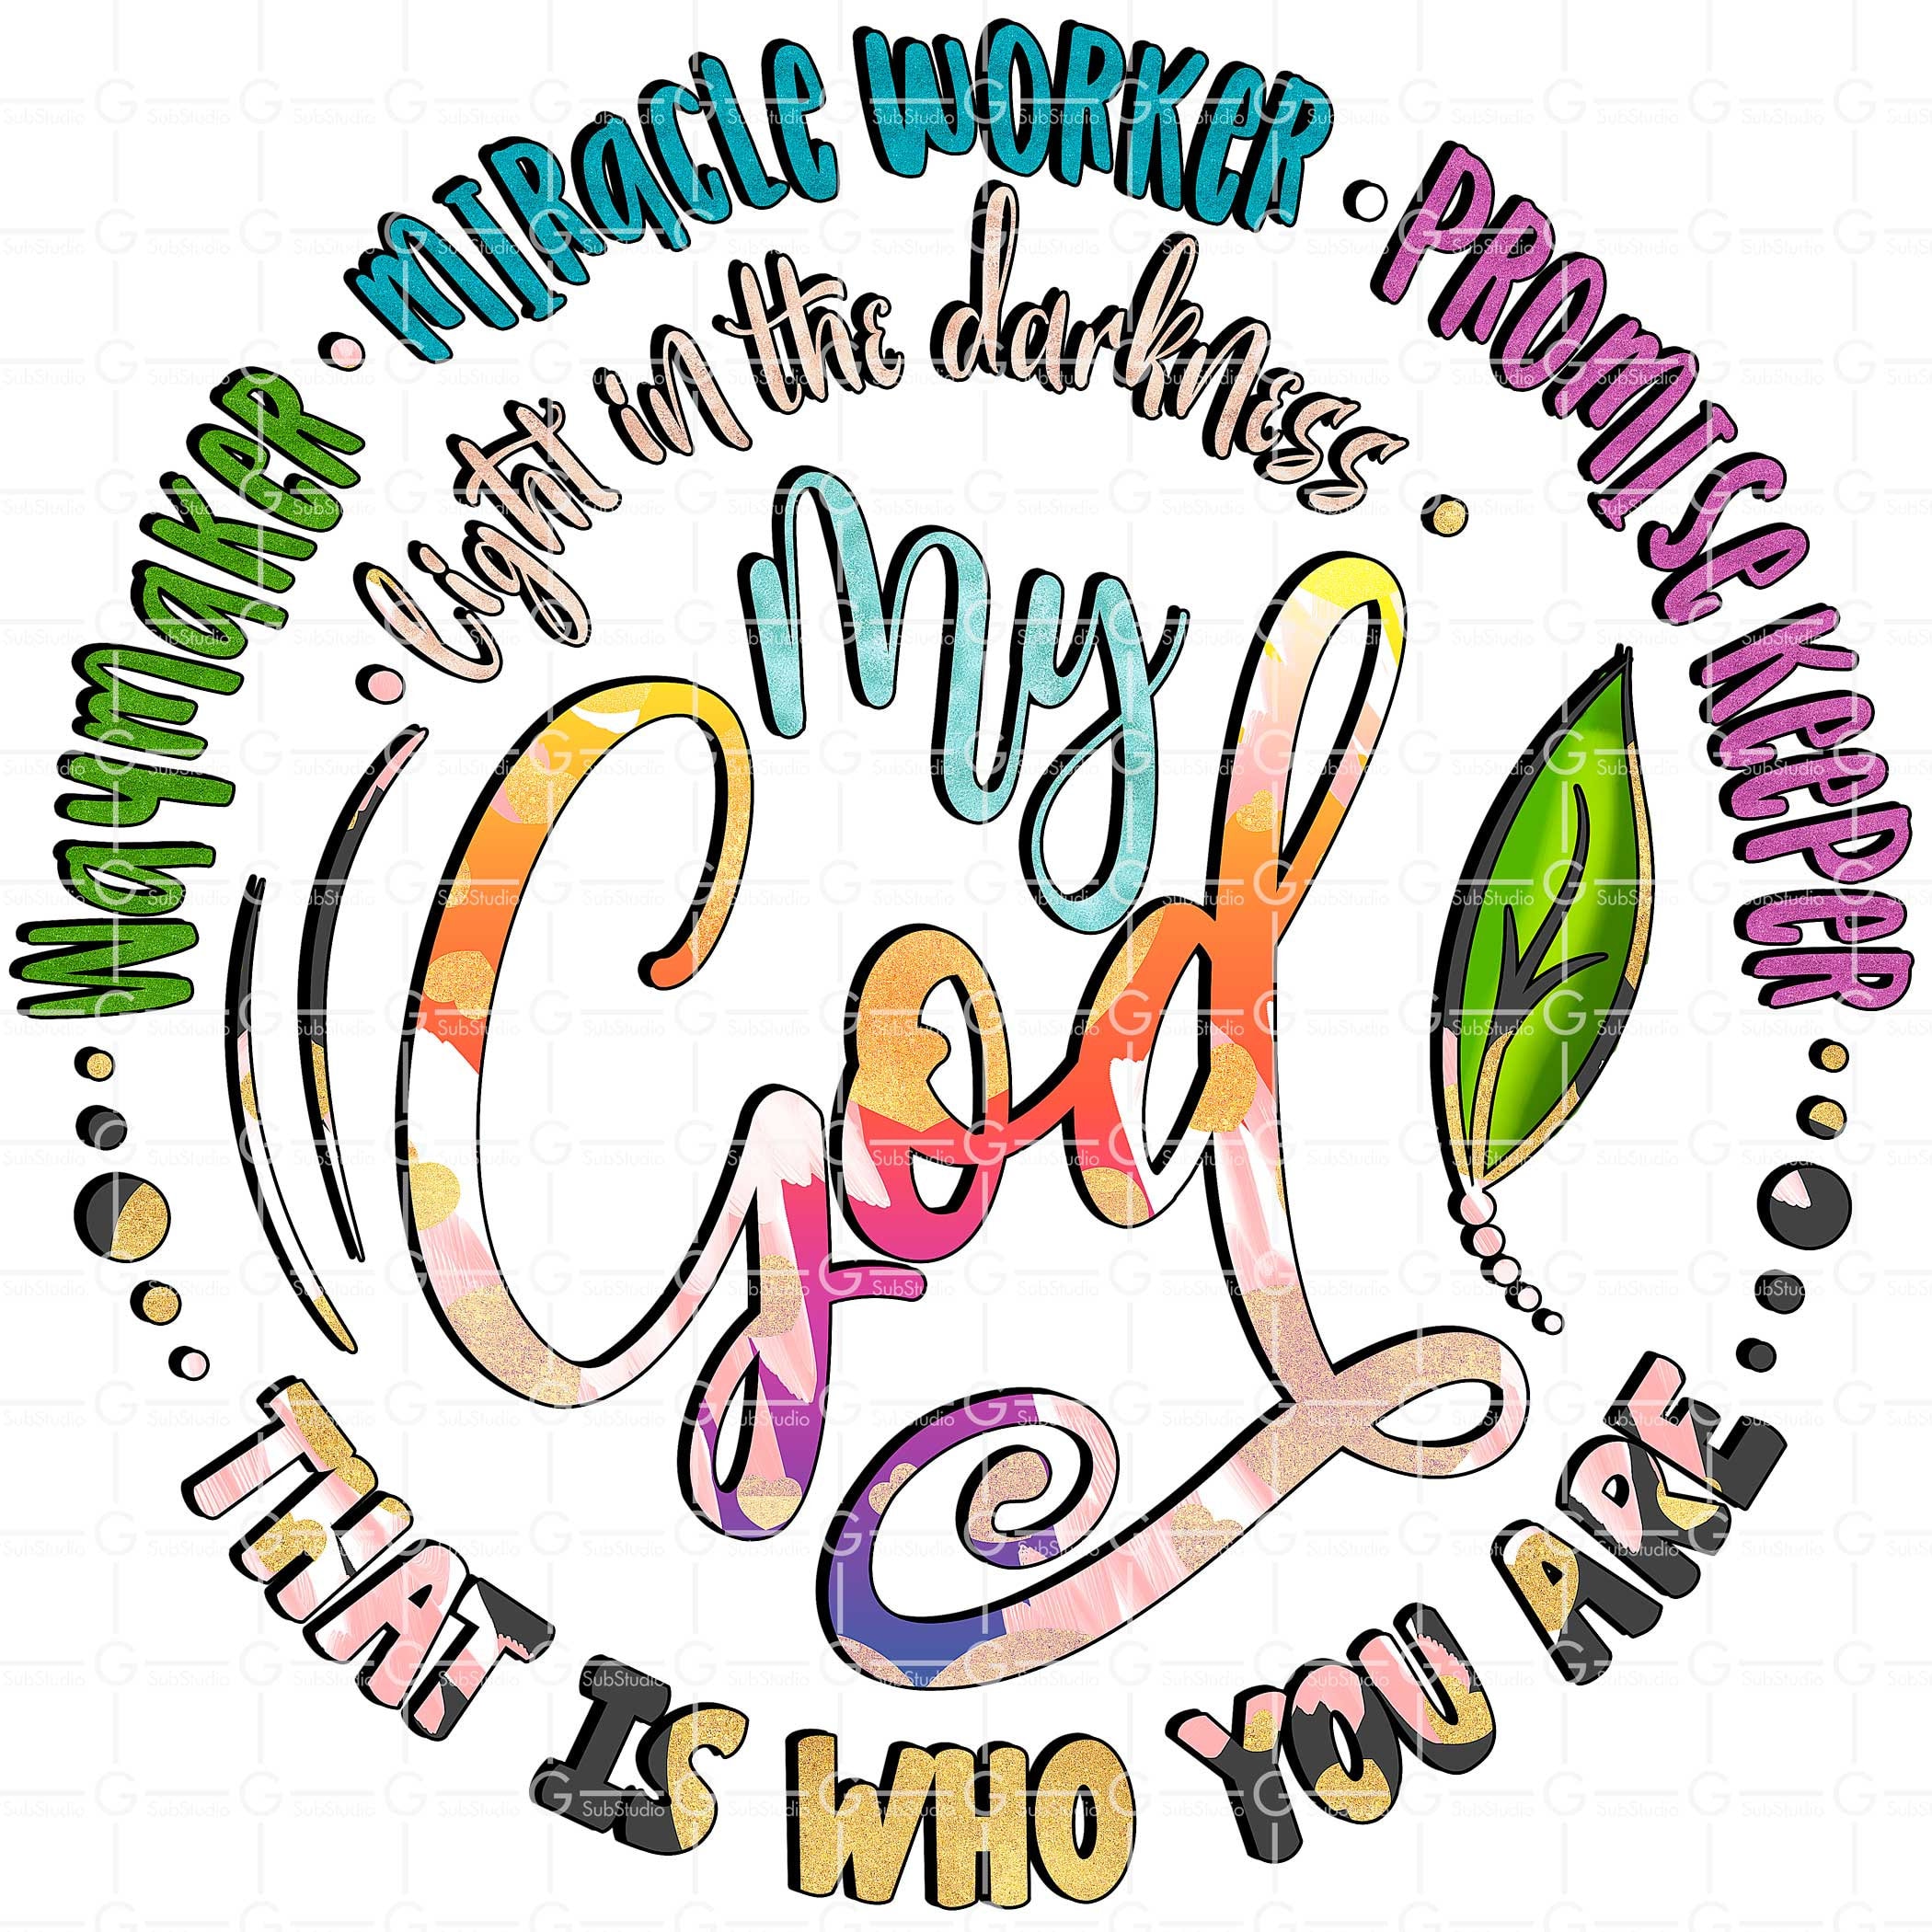 waymaker • miracle worker • promise keeper
• light in the darkness •
my
God
THAT IS WHO YOU ARE
G SubStudio